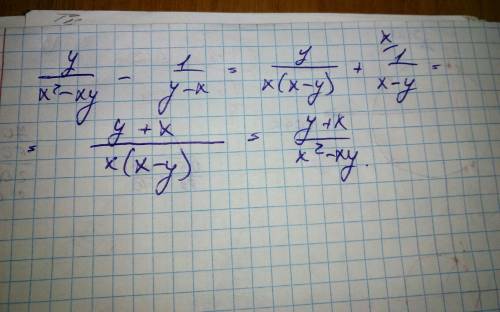 y/(x²-xy) - 1/(y-x) = y/(x(x-y)) + ˣ⁄1/(x-y) =
= (y+x)/(x(x-y)) = (y+x)/(x²-xy).